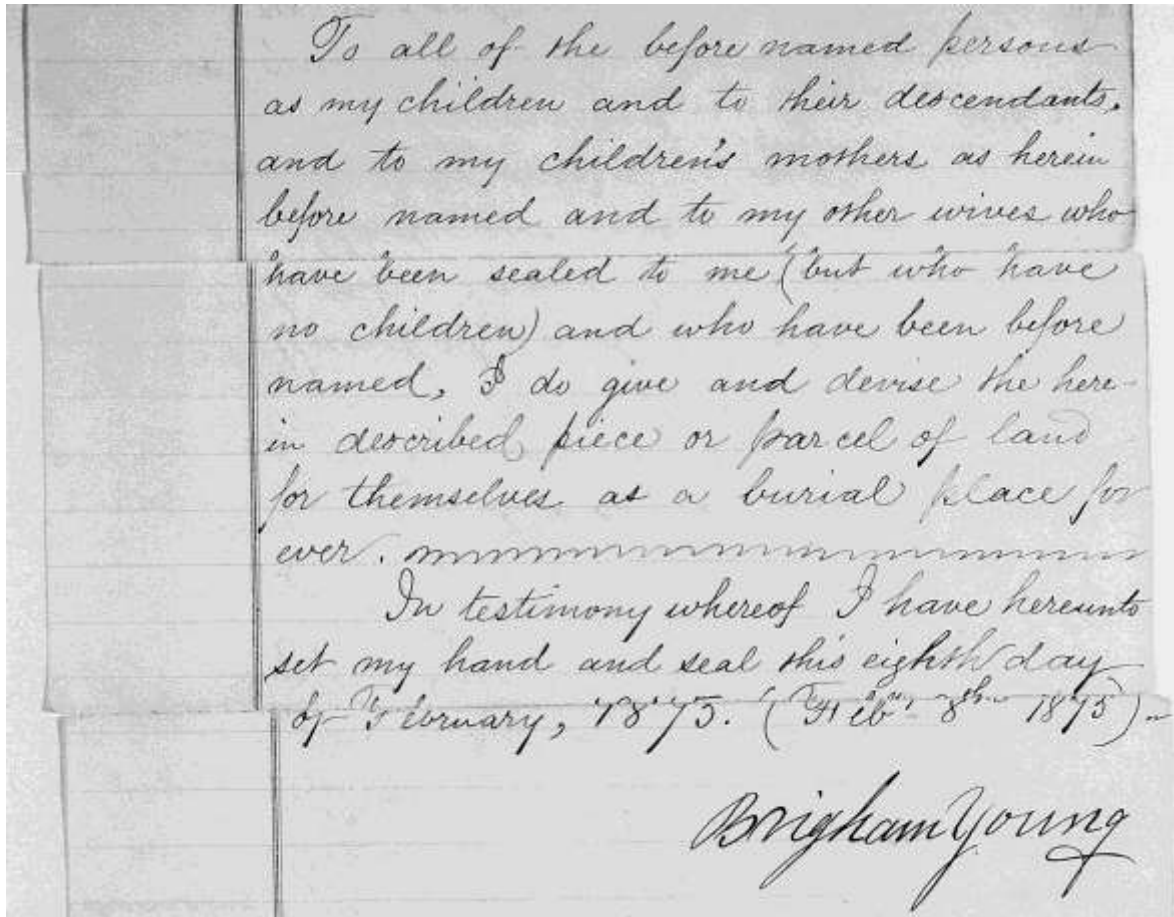 To all of the before named persons
as my children and to their descendants,
and to my children's mothers as herein
before named and to my other wives who
have been sealed to me (but who have
no children) and who have been before
named, I do give and devise the here-
in described piece or parcel of land
for themselves as a burial place for
ever.
In testimony whereof I have hereunto
set my hand and seal this eighth day
of February, 1875. (Feby 8th 1875)
Brigham Young